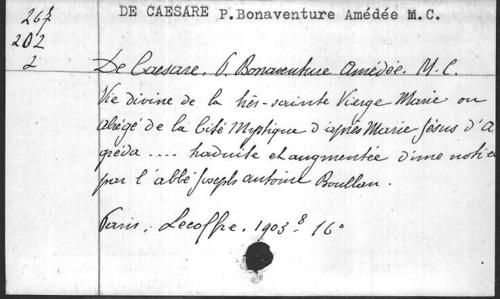 DE CAESARE P.Bonaventure Amédée M.C.
267
202
2
De Caesare. P. Bonaventure Amédée. M. C.
Vie divine de la très-sainte Vierge Marie ou
abrégé de la Cité Mystique d'après Marie Jésus d'A
gréda .... traduite et augmentée d'une notice
par l'abbé Joseph Antoine Boullan.
Paris, Lecoffre. 1903. 8 16°